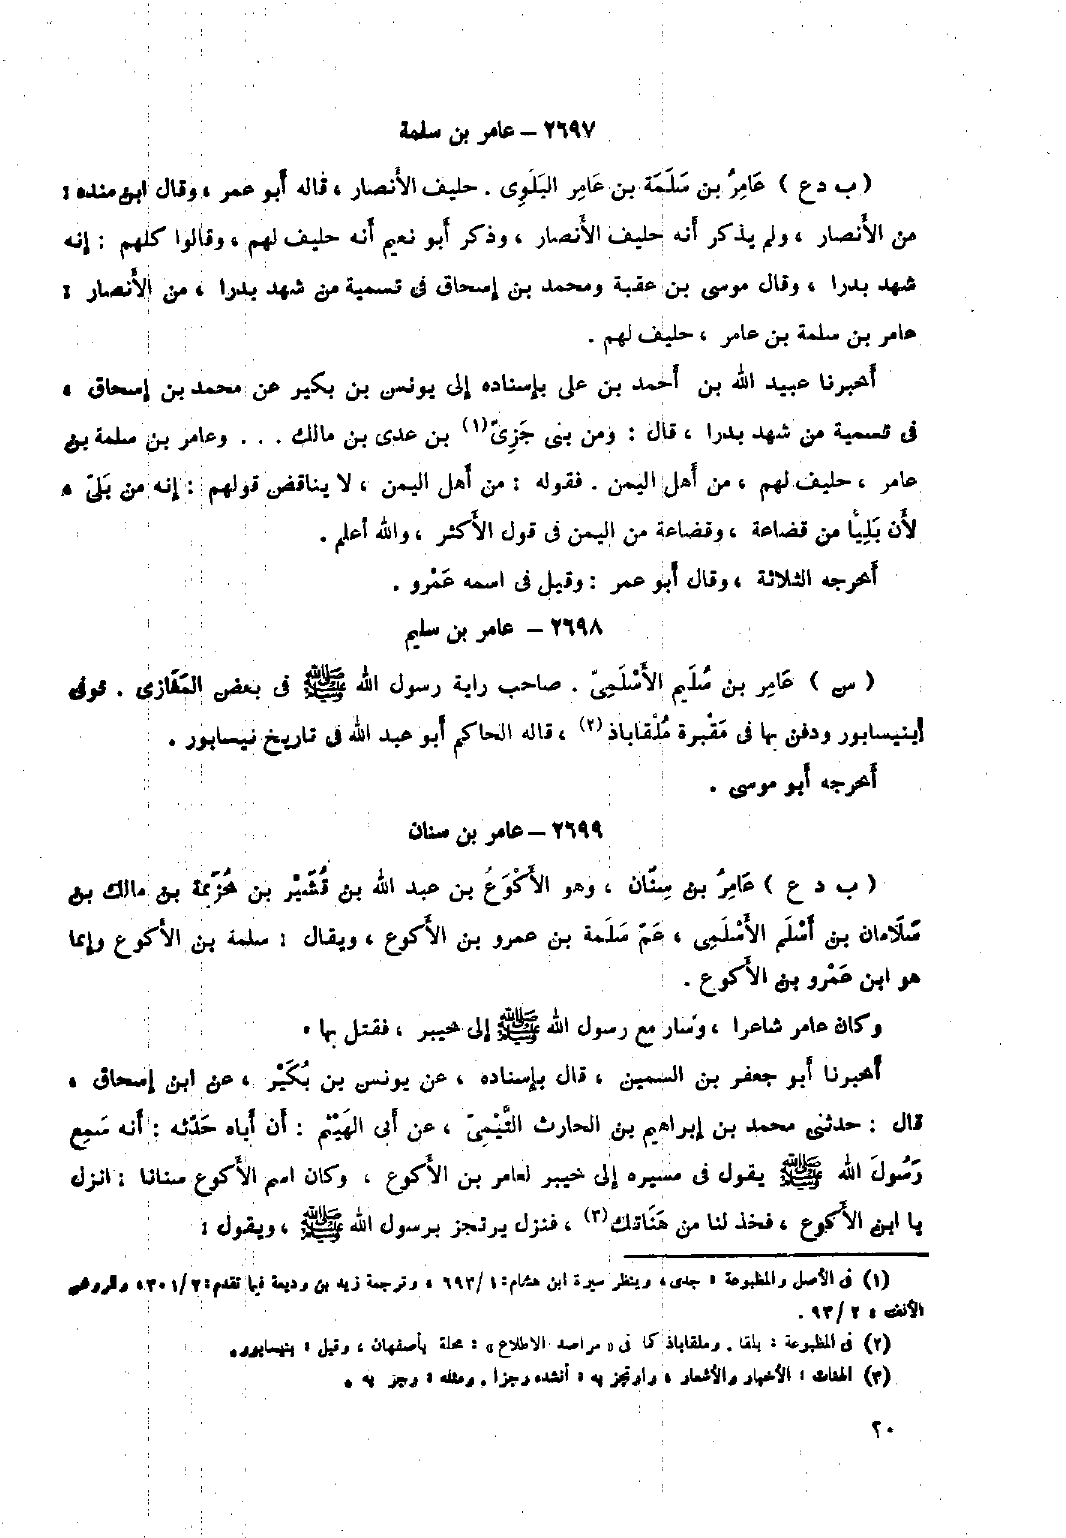 ٢٦٩٧ – عامر بن سلمة
( ب د ع ) عَامِرُ بن سَلَمَة بن عَامِر البَلَوِى . حليف الأَنصار ، قاله أَبو عمر ، وقال ابن منده :
من الأَنصار ، ولم يذكر أَنه حليف الأَنصار ، وذكر أَبو نعيم أَنه حليف لهم ، وقالوا كلهم : إنه
شهد بدرا ، وقال موسى بن عقبة ومحمد بن إسحاق فى تسمية من شهد بدرا ، من الأَنصار :
عامر بن سلمة بن عامر ، حليف لهم .
أَخبرنا عبيد الله بن أَحمد بن على بإسناده إلى يونس بن بكير عن محمد بن إسحاق ،
فى تسمية من شهد بدرا ، قال : ومن بنى جَزِىّ(١) بن عدى بن مالك . . . وعامر بن سلمة بن
عامر ، حليف لهم ، من أَهل اليمن . فقوله : من أَهل اليمن ، لا يناقض قولهم : إنه من بَلىّ ،
لأَن بَلِيًّا من قضاعة ، وقضاعة من اليمن فى قول الأَكثر ، والله أعلم .
أَخرجه الثلاثة ، وقال أَبو عمر : وقيل فى اسمه عَمْرو .
٢٦٩٨ – عامر بن سليم
( س ) عَامِر بن سُلَيم الأَسْلَمِىّ . صاحب راية رسول الله ﷺ فى بعض المَغَازى . توفى
بنيسابور ودفن بها فى مَقْبرة مُلْقاباذ(٢) ، قاله الحاكم أَبو عبد الله فى تاريخ نيسابور .
أَخرجه أَبو موسى .
٢٦٩٩ – عامر بن سنان
( ب د ع ) عَامِرُ بن سِنَان ، وهو الأَكْوَعُ بن عبد الله بن قُشَيْر بن خُزَيمة بن مالك بن
سَلَامان بن أَسْلَم الأَسْلَمِى ، عَمّ سَلَمة بن عمرو بن الأَكوع ، ويقال : سلمة بن الأكوع وإنما
هو ابن عَمْرو بن الأَكوع .
وكان عامر شاعرا ، وسَار مع رسول الله ﷺ إلى خيبر ، فقتل بها .
أَخبرنا أَبو جعفر بن السمين ، قال بإسناده ، عن يونس بن بُكَيْر ، عن ابن إسحاق ،
قال : حدثنى محمد بن إبراهيم بن الحارث التَّيْمِىّ ، عن أَبى الهَيْثم : أَن أَباه حَدّثه : أَنه سَمِع
رَسُولَ الله ﷺ يقول فى مسيره إلى خيبر لعامر بن الأَكوع ، وكان اسم الأَكوع سنانا : انزل
يا ابن الأَكوع ، فخذ لنا من هَنَاتك(٣) ، فنزل يرتجز برسول الله ﷺ ، ويقول :
(١) فى الأصل والمطبوعة : جدى، وينظر سيرة ابن هشام: ١/ ٦٩٣ ، وترجمة زيد بن وديعة فيما تقدم: ٢/ ٣٠١، والروض
الأنف : ٢ / ٩٣ .
(٢) فى المطبوعة : بلقا . وملقاباذ كما فى « مراصد الاطلاع » : محلة بأصفهان ، وقيل : بنيسابور.
(٣) الهنات : الأخبار والأشعار ، وارتجز به : أنشده رجزا . ومثله : رجز به .
٢٠